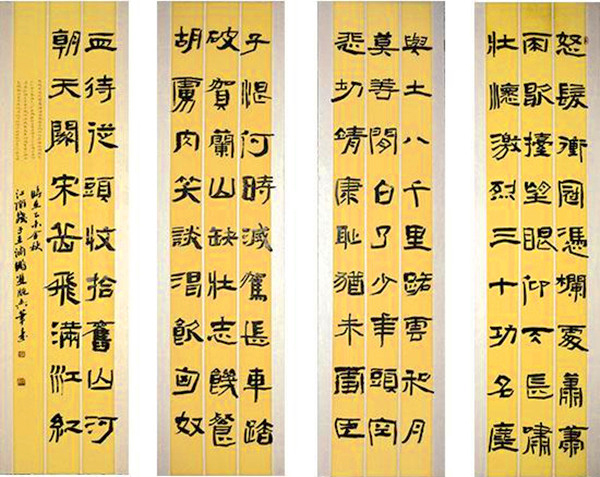 怒髮衝冠憑欄處蕭蕭
雨歇擡望眼仰天長嘯
壯懷激烈三十功名塵
與土八千里路雲和月
莫等閒白了少年頭空
悲切靖康恥猶未雪臣
子恨何時滅駕長車踏
破賀蘭山缺壯志饑餐
胡虜肉笑談渴飲匈奴
血待從頭收拾舊山河
朝天闕宋岳飛滿江紅
時在乙未金秋